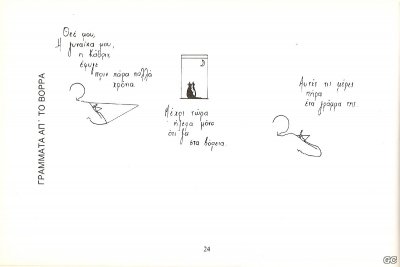 ΓΡΑΜΜΑΤΑ ΑΠ' ΤΟ ΒΟΡΡΑ
Θεέ μου,
Η γυναίκα μου,
η Κάθριν
έφυγε
πριν πάρα πολλά
χρόνια.
Μέχρι τώρα
ήξερα μόνο
ότι ζα
στα βόρεια.
Αυτές τις μέρες
πήρα
ένα γράμμα της
24
GC